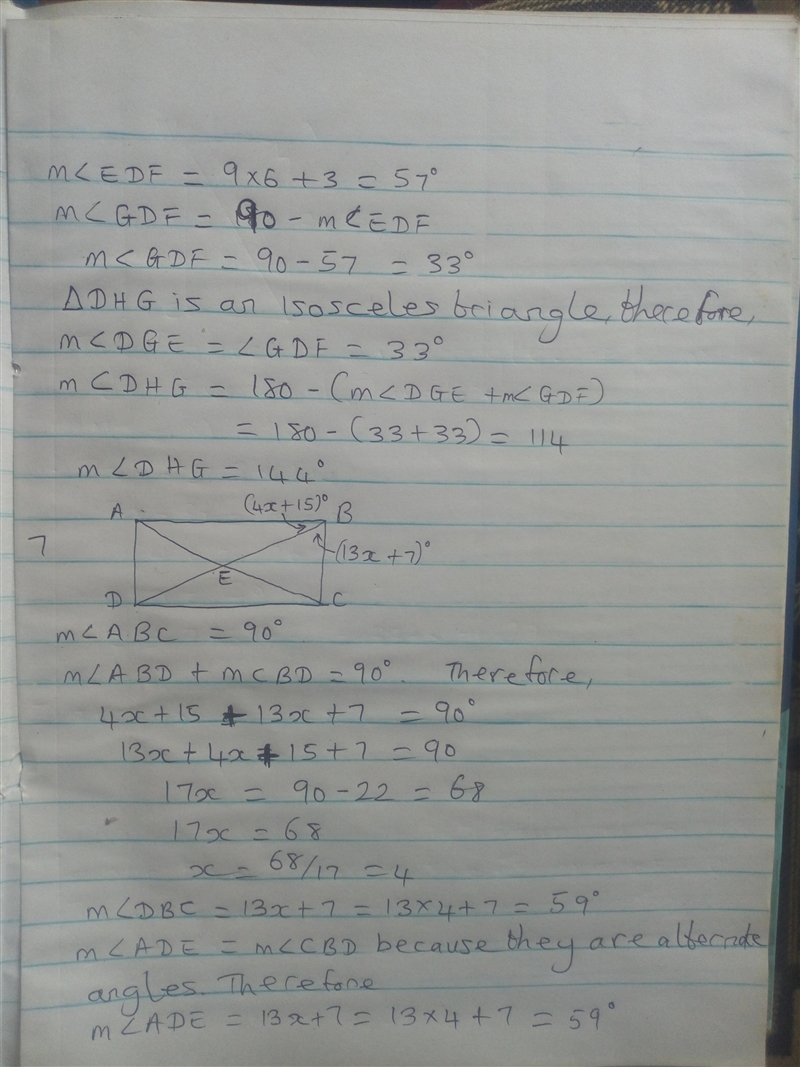 m<EDF = 9x6 + 3 = 57°
m<GDF = 90 - m<EDF
m<GDF = 90 - 57 = 33°
ΔDHG is an Isosceles triangle, therefore,
m<DGE = <GDF = 33°
m<DHG = 180 - (m<DGE + m<GDF)
= 180 - (33+33) = 114
m<DHG = 144°
A (4x+15)° B
7 (13x+7)°
E
D C
m<ABC = 90°
m<ABD + mCBD = 90°. Therefore,
4x+15 + 13x+7 = 90°
13x+4x+15+7 = 90
17x = 90-22 = 68
17x = 68
x = 68/17 = 4
m<DBC = 13x+7 = 13x4+7 = 59°
m<ADE = m<CBD because they are alternate
angles. Therefore
m<ADE = 13x+7 = 13x4+7 = 59°